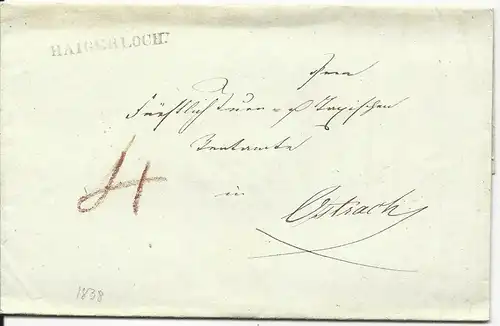 HAIGERLOCH.
Fürstlich Turn u Taxischen
Rentamte
in
Ostrach
4
1838